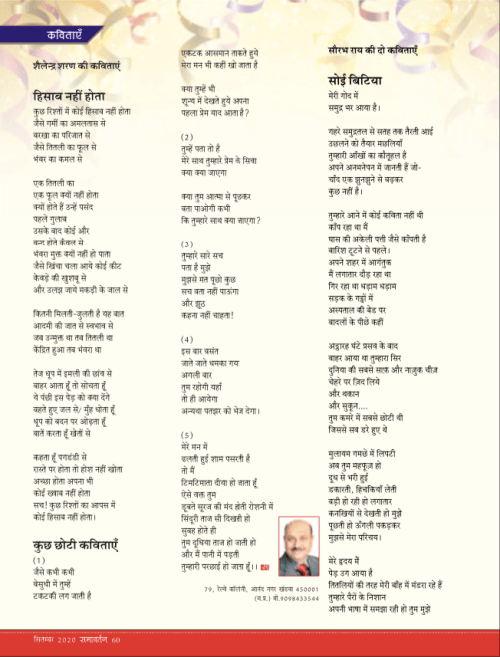 कविताएँ
शैलेन्द्र शरण की कविताएं
हिसाब नहीं होता
कुछ रिश्तों में कोई हिसाब नहीं होता
जैसे गर्मी का अमलतास से
बरखा का परिजात से
जैसे तितली का फूल से
भंवर का कमल से
एक तितली का
एक फूल क्यों नहीं होता
क्यों होते हैं उन्हें पसंद
पहले गुलाब
उसके बाद कोई और
बन्द होते कैवल से
भंवरा मुक्त क्यों नहीं हो पाता
जैसे खिंचा चला आये कोई कीट
केवड़े की खुशबू से
और उलझ जाये मकड़ी के जाल से
कितनी मिलती-जुलती है यह बात
आदमी की जात से स्वभाव से
जब उन्मुक्त था तब तितली था
केंद्रित हुआ तब भंवरा था
तेज धूप में इमली की छांव से
बाहर आता हूँ तो सोचता हूँ
ये पंछी इस पेड़ को क्या देंगे
बहते हुए जल से/ मुँह धोता हूँ
धूप को बदन पर ओढ़ता हूँ
बातें करता हूँ खेतों से
कहता हूँ पगडंडी से
रास्ते पर होता तो होश नहीं खोता
अच्छा होता अपना भी
कोई ख्वाब नहीं होता
सच! कुछ रिश्तों का आपस में
कोई हिसाब नहीं होता।
कुछ छोटी कविताएँ
(1)
जैसे कभी कभी
बेसुधी में तुम्हें
टकटकी लग जाती है
एकटक आसमान ताकते हुये
मेरा मन भी कहीं खो जाता है
क्या तुम्हें भी
शून्य में देखते हुये अपना
पहला प्रेम याद आता है?
(2)
तुम्हें पता तो है
मेरे साथ तुम्हारे प्रेम के सिवा
क्या क्या जाएगा
क्या तुम आत्मा से पूछकर
बता पाओगी कभी
कि तुम्हारे साथ क्या जाएगा?
(3)
तुम्हारे सारे सच
पता है मुझे
मुझसे मत पूछो कुछ
सच बता नहीं पाऊंगा
और झूठ
कहना नहीं चाहता!
(4)
इस बार बसंत
जाते जाते धमका गया
अगली बार
तुम रहोगी यहाँ
तो ही आयेगा
अन्यथा पतझर को भेज देगा।
(5)
मेरे मन में
ढलती हुई शाम पसरती है
तो मैं
टिमटिमाता दीया हो जाता हूँ
ऐसे वक्त तुम
डूबते सूरज की मंद होती रोशनी में
सिंदूरी ताज सी दिखती हो
सुबह होते ही
तुम दूधिया ताज हो जाती हो
और मैं पानी में पड़ती
तुम्हारी परछाई हो जाता हूँ।।
79, रेल्वे कॉलोनी, आनंद नगर खंडवा 450001
(म.प्र.) मो.9098433544
सौरभ राय की दो कविताएँ
सोई बिटिया
मेरी गोद में
समुद्र भर आया है।
गहरे समुद्रतल से सतह तक तैरती आईं
उछलने को तैयार मछलियाँ
तुम्हारी आँखों का कौतूहल है
अपने अनमनेपन में जानती हैं जो-
चाँद एक झुनझुने से बढ़कर
कुछ नहीं है।
तुम्हारे आने में कोई कविता नहीं थी
काँप रहा था मैं
घास की अकेली पत्ती जैसे काँपती है
बारिश टूटने से पहले।
अपने शहर में आगंतुक
मैं लगातार दौड़ रहा था
गिर रहा था धड़ाम धड़ाम
सड़क के गड्ढों में
अस्पताल की बेड पर
बादलों के पीछे कहीं
अट्ठारह घंटे प्रसव के बाद
बाहर आया था तुम्हारा सिर
दुनिया की सबसे साफ़ और नाज़ुक चीज़
चेहरे पर ज़िद लिये
और थकान
और सुकून....
तुम कमरे में सबसे छोटी थी
जिससे सब डरे हुए थे
मुलायम गमछे में लिपटी
अब तुम महफूज़ हो
दूध से भरी हुई
डकारती, हिचकियाँ लेती
बड़ी हो रही हो लगातार
कनखियों से देखती हो मुझे
पूछती हो उँगली पकड़कर
मुझसे मेरा परिचय।
मेरे हृदय में
पेड़ उग आया है
तितलियों की तरह मेरी बाँह में मंडरा रहे हैं
तुम्हारे पैरों के निशान
अपनी भाषा में समझा रही हो तुम मुझे
सितम्बर 2020 समावर्तन 60